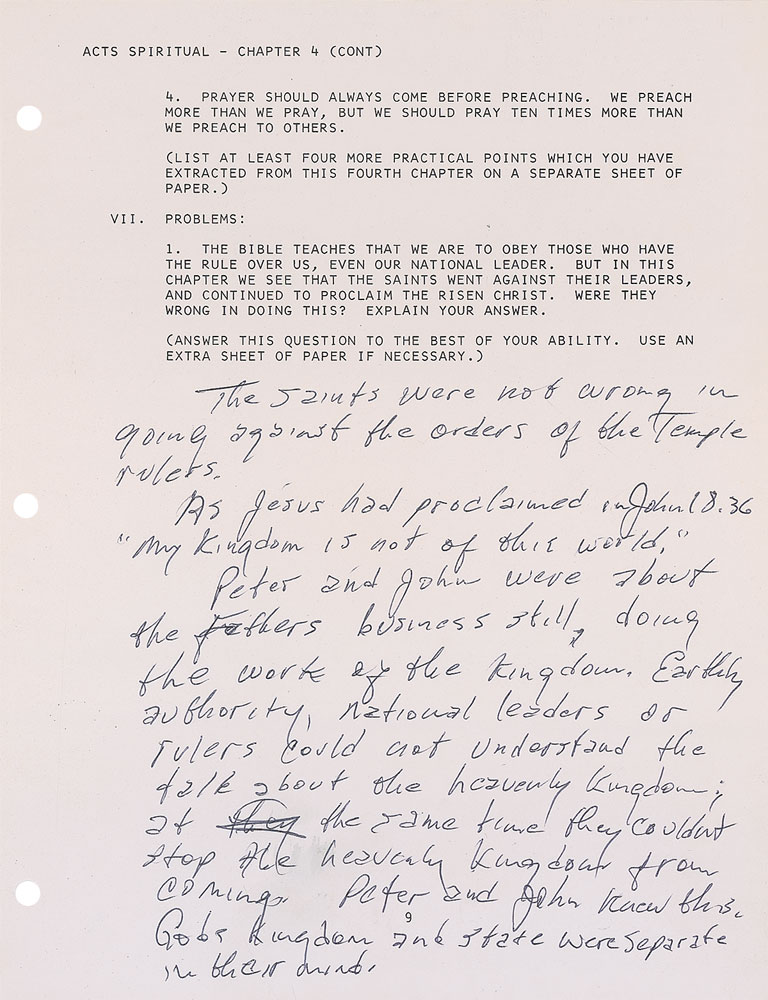 ACTS SPIRITUAL - CHAPTER 4 (CONT)
4. PRAYER SHOULD ALWAYS COME BEFORE PREACHING. WE PREACH
MORE THAN WE PRAY, BUT WE SHOULD PRAY TEN TIMES MORE THAN
WE PREACH TO OTHERS.
(LIST AT LEAST FOUR MORE PRACTICAL POINTS WHICH YOU HAVE
EXTRACTED FROM THIS FOURTH CHAPTER ON A SEPARATE SHEET OF
PAPER.)
VII. PROBLEMS:
1. THE BIBLE TEACHES THAT WE ARE TO OBEY THOSE WHO HAVE
THE RULE OVER US, EVEN OUR NATIONAL LEADER. BUT IN THIS
CHAPTER WE SEE THAT THE SAINTS WENT AGAINST THEIR LEADERS,
AND CONTINUED TO PROCLAIM THE RISEN CHRIST. WERE THEY
WRONG IN DOING THIS? EXPLAIN YOUR ANSWER.
(ANSWER THIS QUESTION TO THE BEST OF YOUR ABILITY. USE AN
EXTRA SHEET OF PAPER IF NECESSARY.)
The saints were not wrong in
going against the orders of the Temple
rulers.
As Jesus had proclaimed in John 18:36
"My Kingdom is not of this world."
Peter and John were about
the Fathers business still, doing
the work of the Kingdom. Earthly
authority, national leaders or
rulers could not understand the
talk about the heavenly Kingdom;
at they the same time they couldnt
stop the heavenly Kingdom from
coming. Peter and John knew this.
9
Gods Kingdom and state were separate
in their mind.